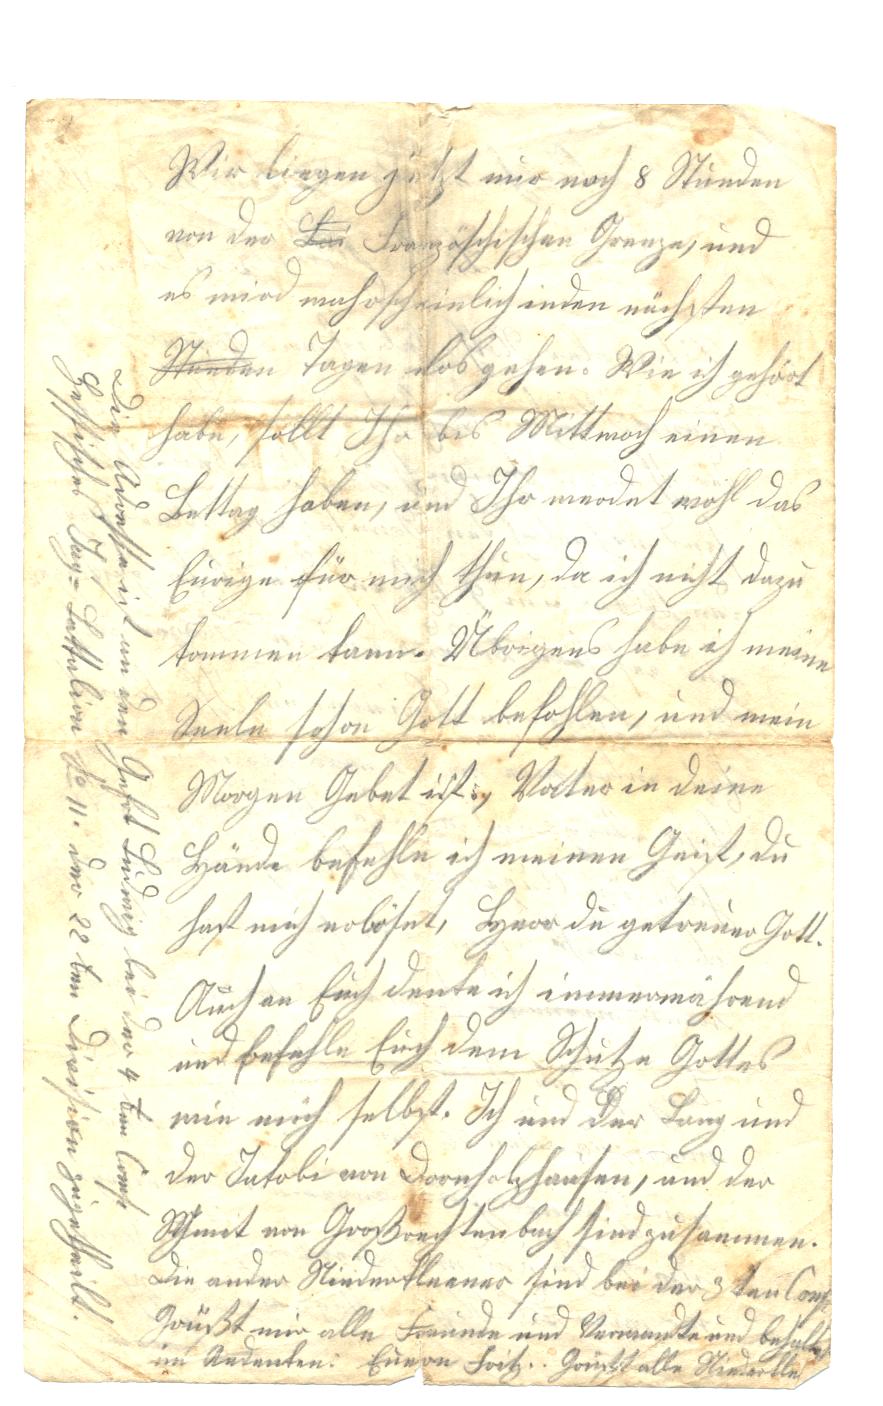 Wir liegen jetzt nur noch 8 Stunden
von der Französchischen Grenze, und
es wird wahrscheinlich in den nächsten
Stunden Tagen los gehen. Wie ich gehört
habe, sollt Ihr bis Mittwoch einen
Bettag haben, und Ihr werdet wohl das
Eurige für mich thun, da ich nicht dazu
kommen kann. Übrigens habe ich meine
Seele schon Gott befohlen, und mein
Morgen Gebet ist: Vater in deine
Hände befehle ich meinen Geist, du
hast mich erlöset, Herr du getreuer Gott.
Auch an Euch denke ich immerwährend
und befehle Euch dem Schutze Gottes
wie mich selbst. Ich und der Lang und
der Jakobi von Dornholzhausen, und der
von Großrechtenbach sind zusammen.
Die ander Niederkleener sind bei der 3 ten Comp.
Grüßt mir alle Freunde und Verwandte und behaltet
im Andenken. Euern Fritz. Grüßt alle Niederklee
Die Adresse ist an den Gefrt Ludwig bei der 4 ten Comp
Hessisches Jäg- Battalion No 11. der 22 ten Division zugetheilt.